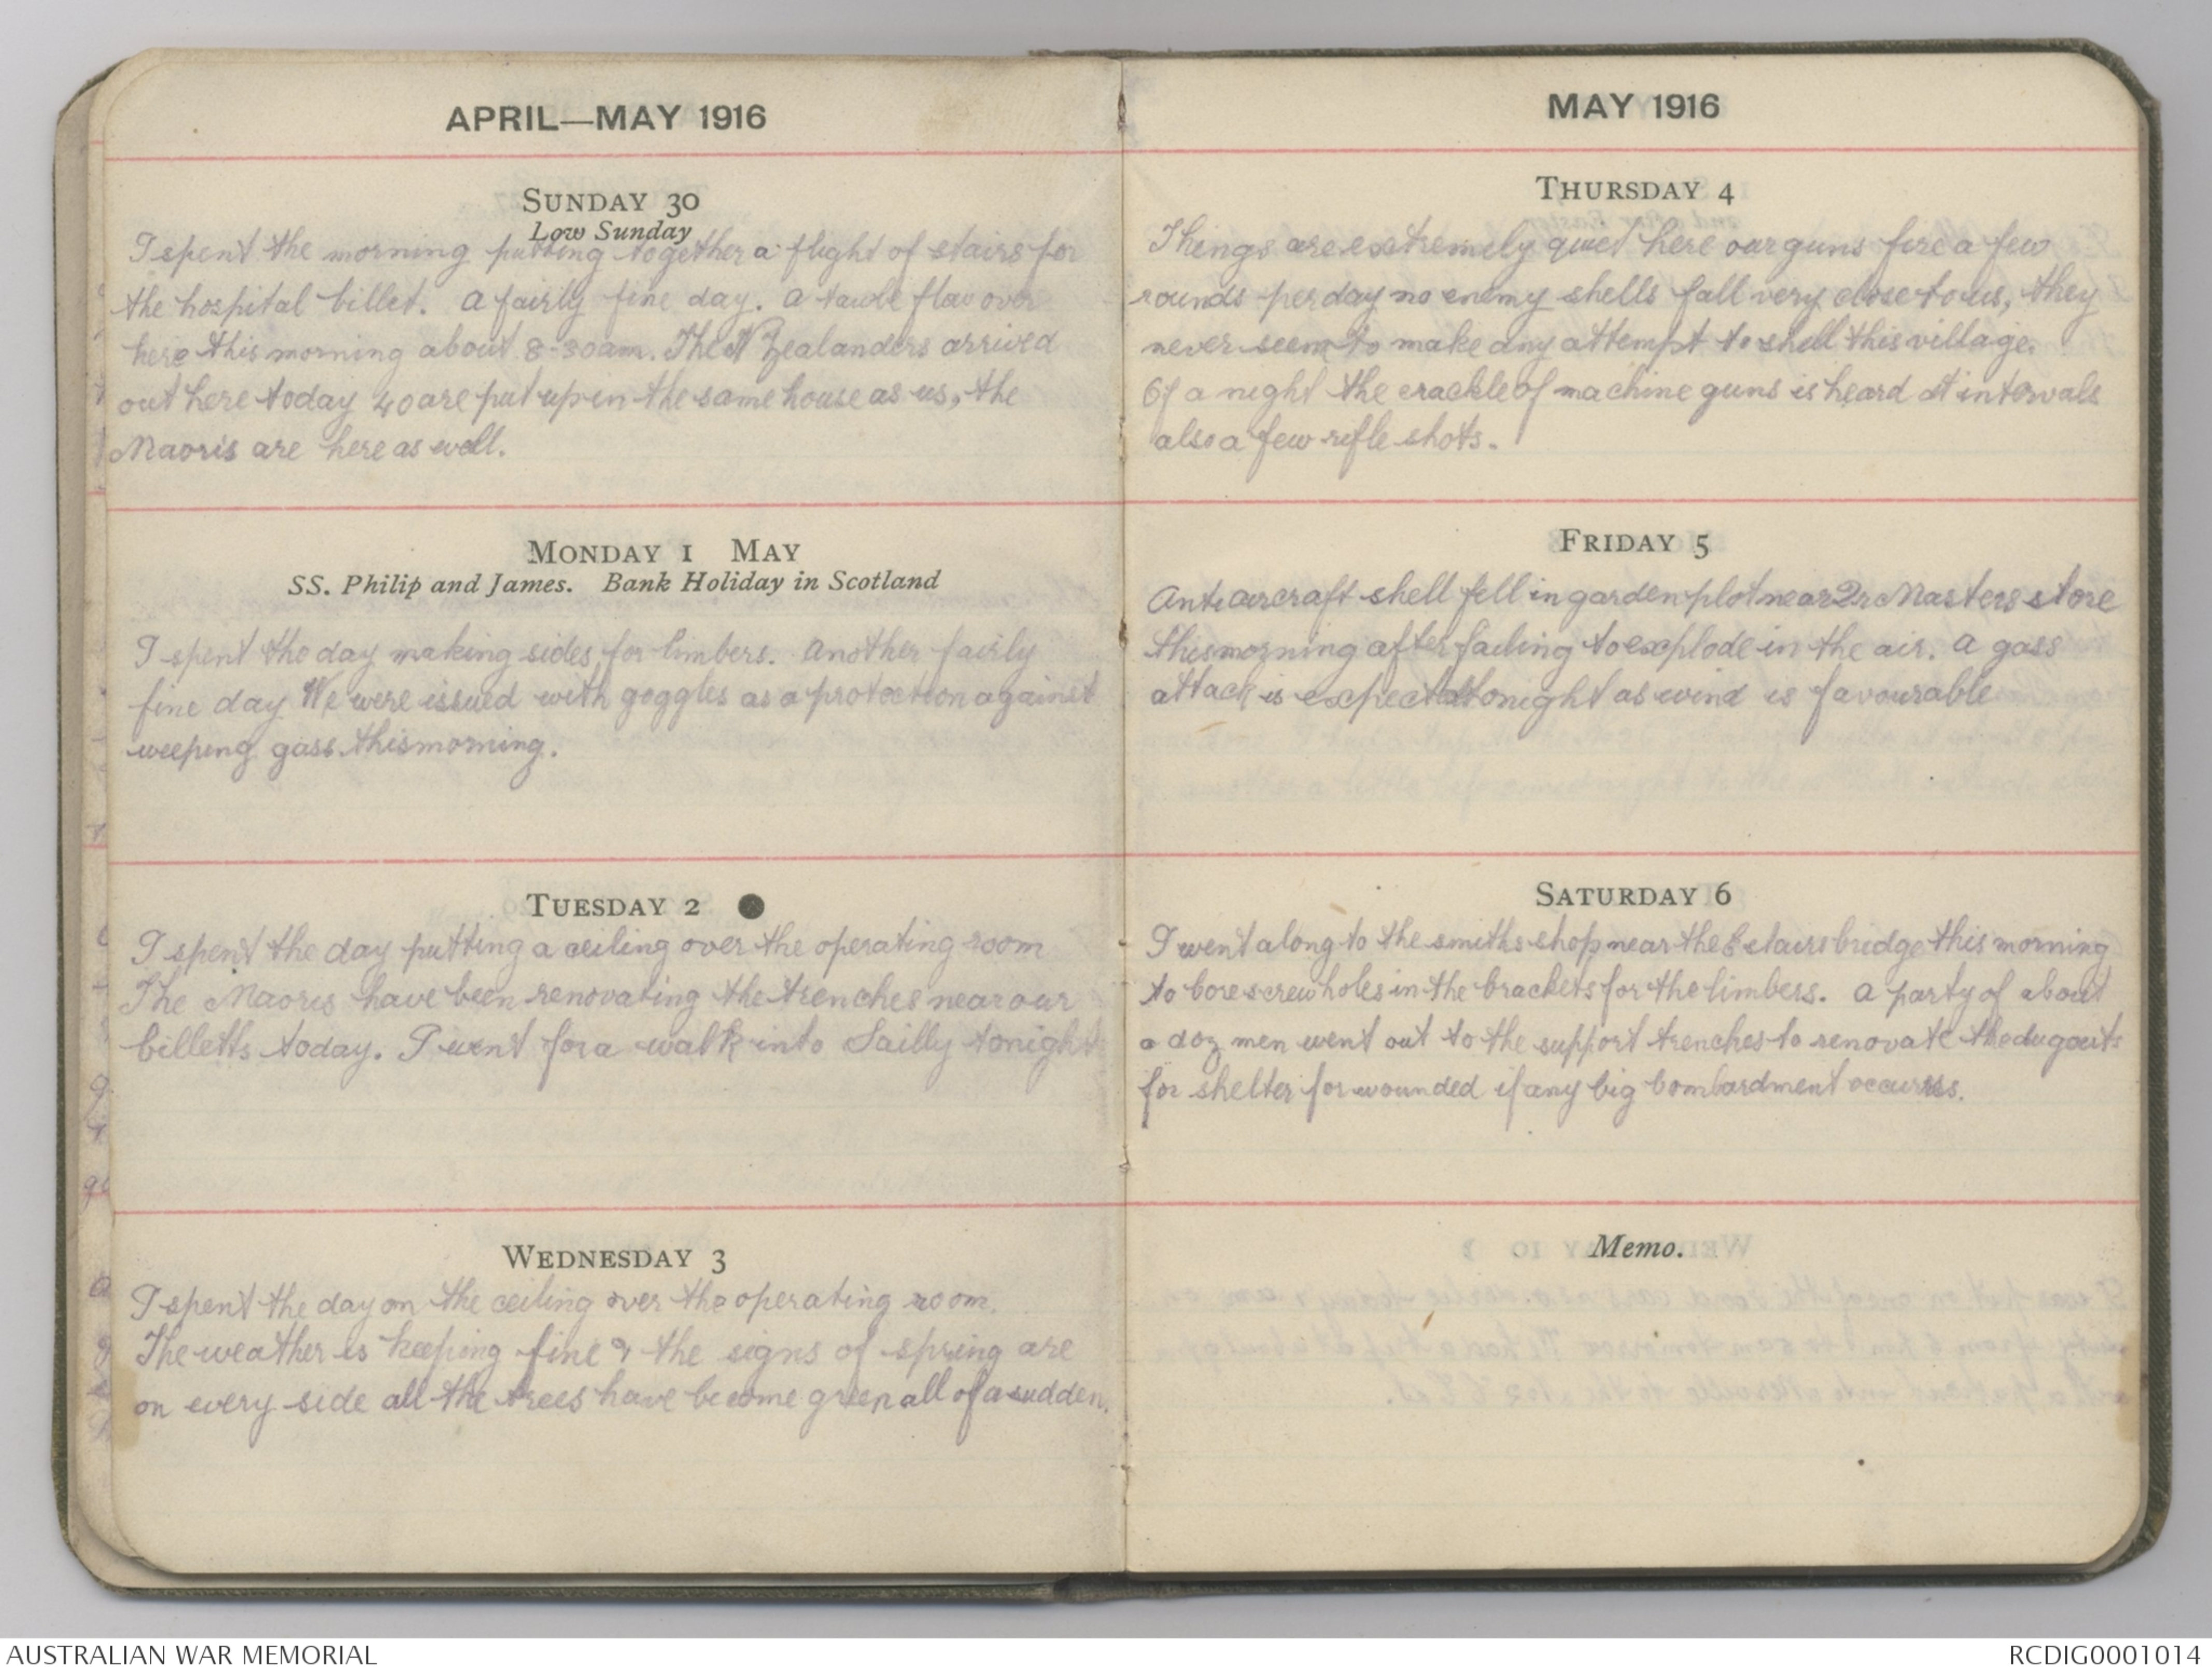 APRIL—MAY 1916
SUNDAY 30
Low Sunday
I spent the morning putting together a flight of stairs for
the hospital billet. A fairly fine day. A taube flew over
here this morning about 8-30am. The N Zealanders arrived
out here today 40 are put up in the same house as us, the
Maoris are here as well.
MONDAY 1 MAY
SS. Philip and James. Bank Holiday in Scotland
I spent the day making sides for limbers. Another fairly
fine day We were issued with goggles as a protection against
weeping gass this morning.
TUESDAY 2
I spent the day putting a ceiling over the operating room
The Maoris have been renovating the trenches near our
billetts today. I went for a walk into Sailly tonight
WEDNESDAY 3
I spent the day on the ceiling over the operating room.
The weather is keeping fine & the signs of spring are
on every side all the trees have become green all of a sudden.
MAY 1916
THURSDAY 4
Things are extremely quiet here our guns fire a few
rounds per day no enemy shells fall very close to us, they
never seem to make any attempt to shell this village.
Of a night the crackle of machine guns is heard at intervals
also a few rifle shots.
FRIDAY 5
Antiaircraft shell fell in garden plot near Qr Masters store
this morning after failing to explode in the air. A gass
attack is expected tonight as wind is favourable
SATURDAY 6
I went along to the smiths shop near the Estairs bridge this morning
to bore screw holes in the brackets for the limbers. A party of about
a doz men went out to the support trenches to renovate the dugouts
for shelter for wounded if any big bombardment occurs.
Memo.
AUSTRALIAN WAR MEMORIAL
RCDIG0001014